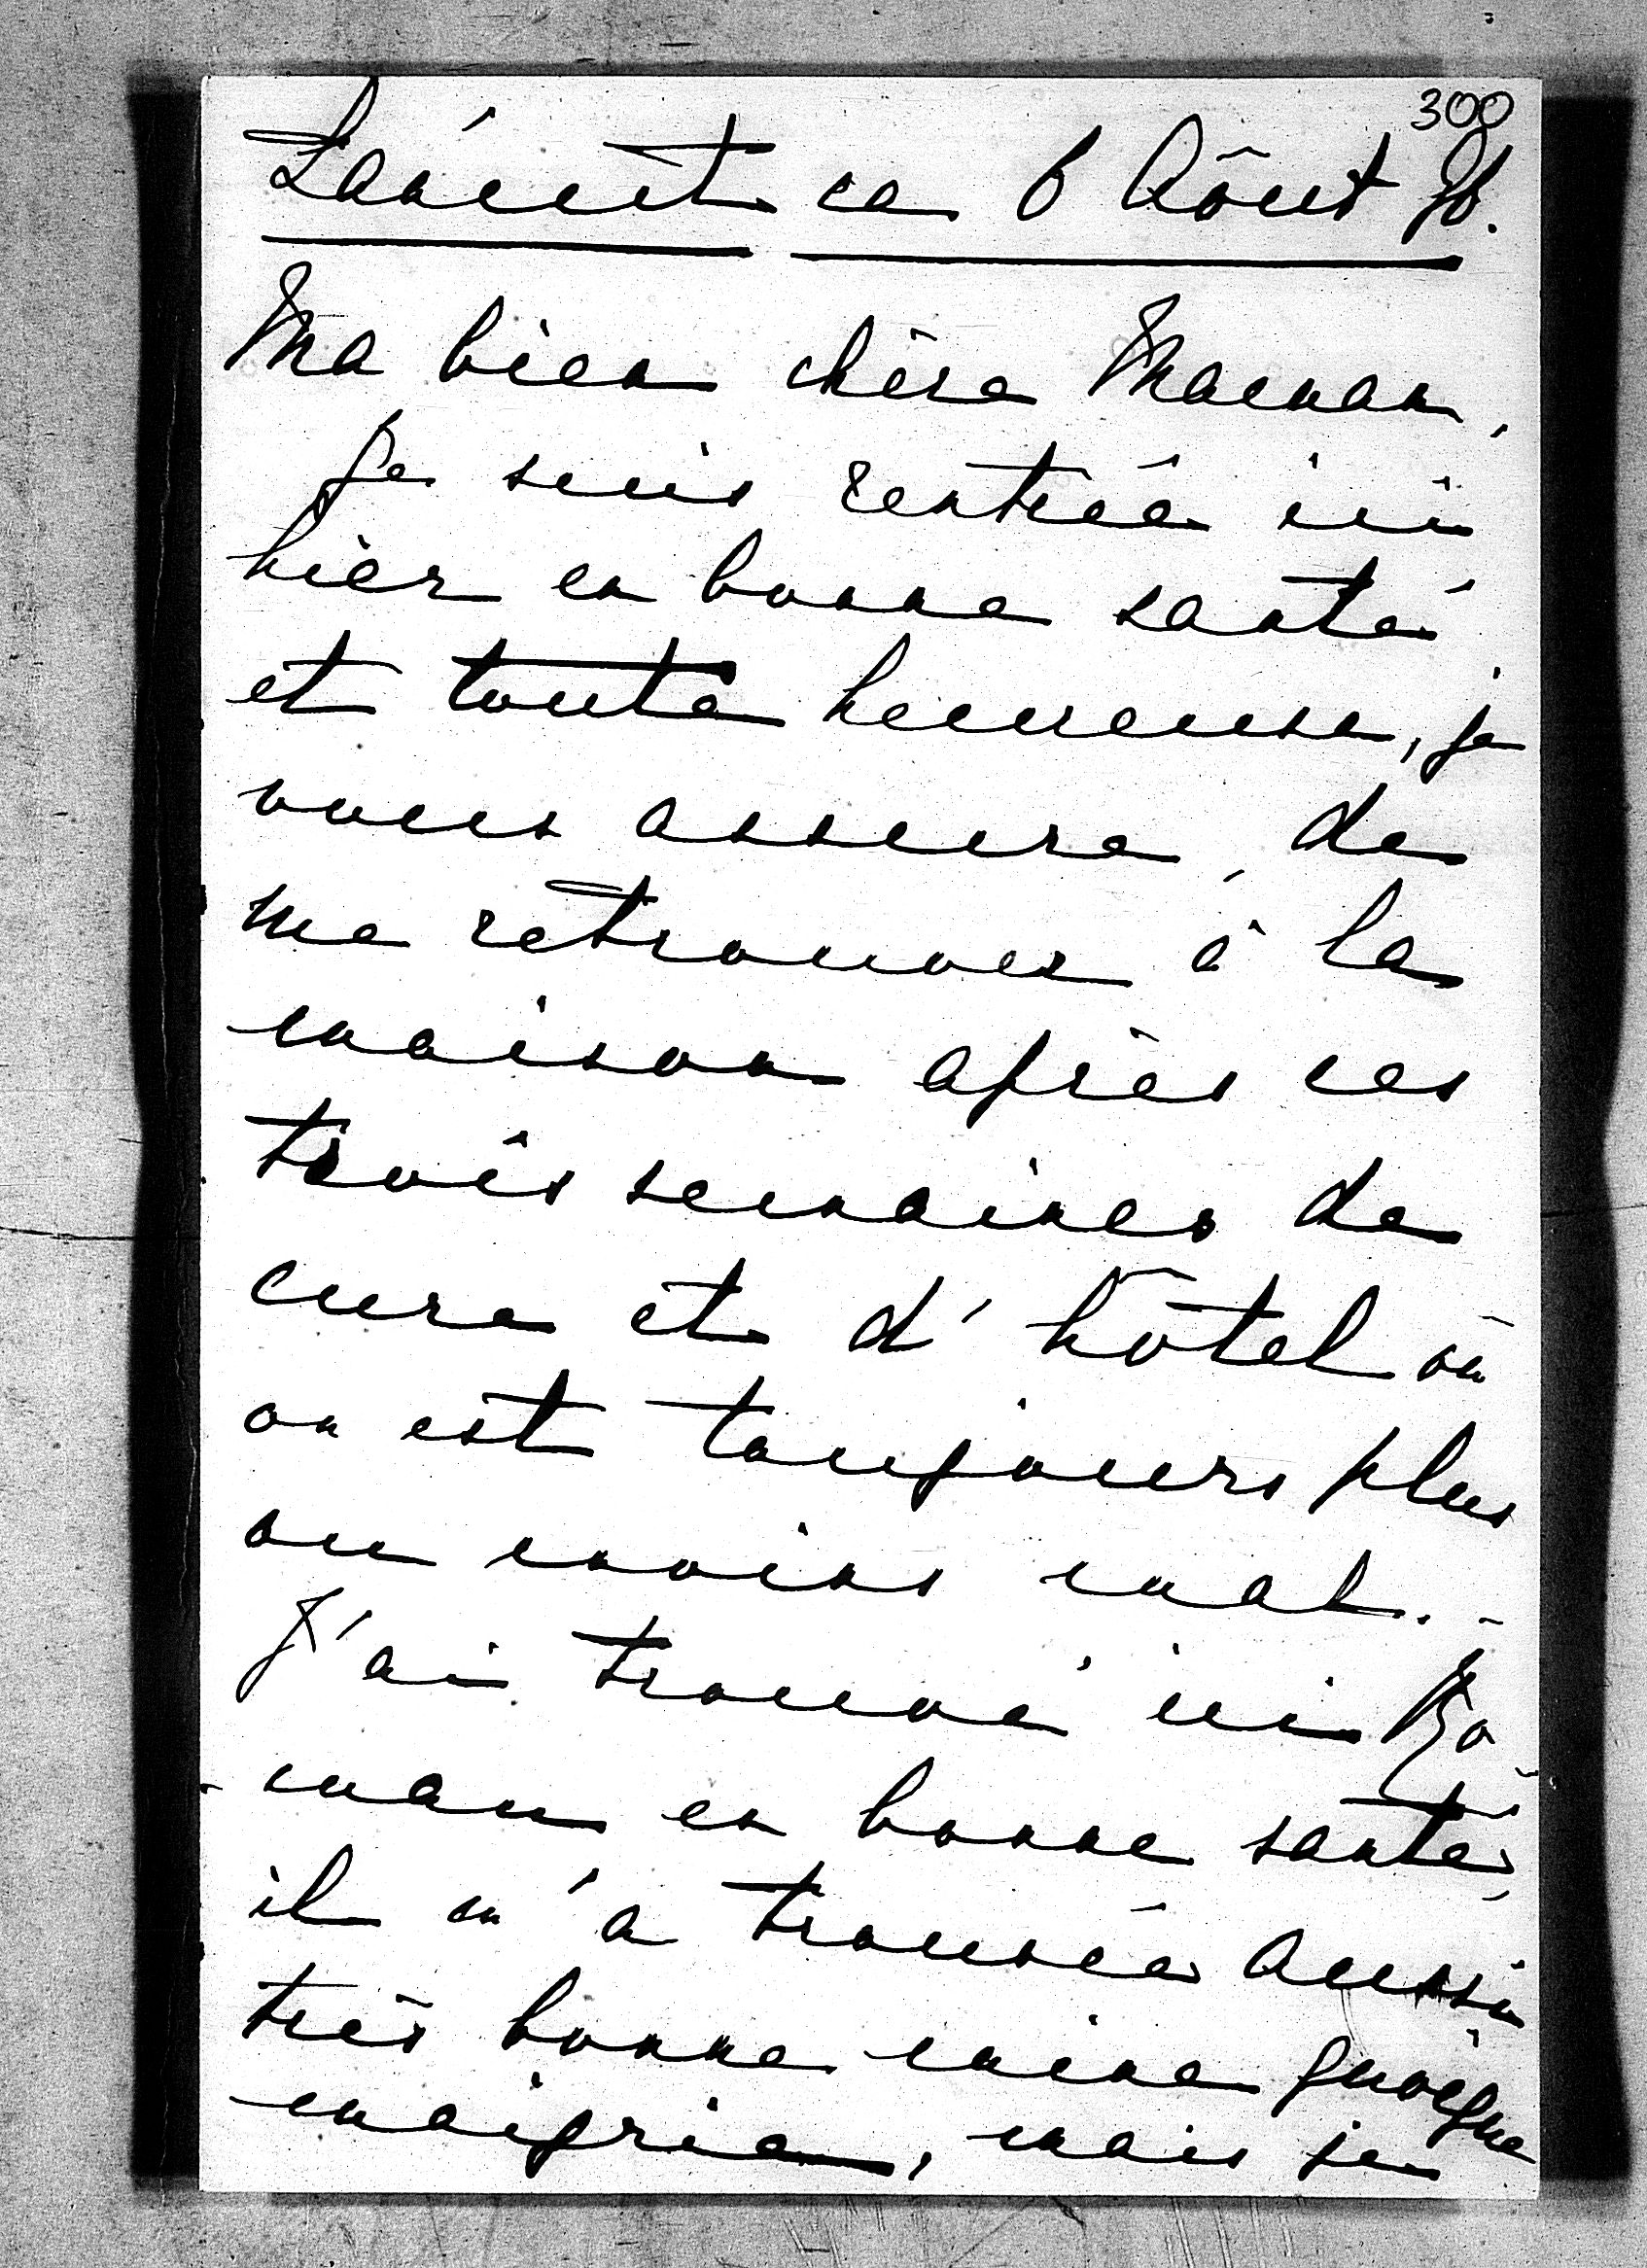 300
Łańcut ce 6 Aôut 96.
Ma bien chère Maman,
Je suis rentrée ici
hier en bonne santé
et toute heureuse, je
vous assure, de
me retrouver à la
maison après ces
trois semaines de
cure et d'hôtel où
on est toujours plus
ou moins mal. -
J'ai trouvé ici Ro-
man en bonne santé,
il m'a trouvée aussi
très bonne mine quoique
maigrie, mais je